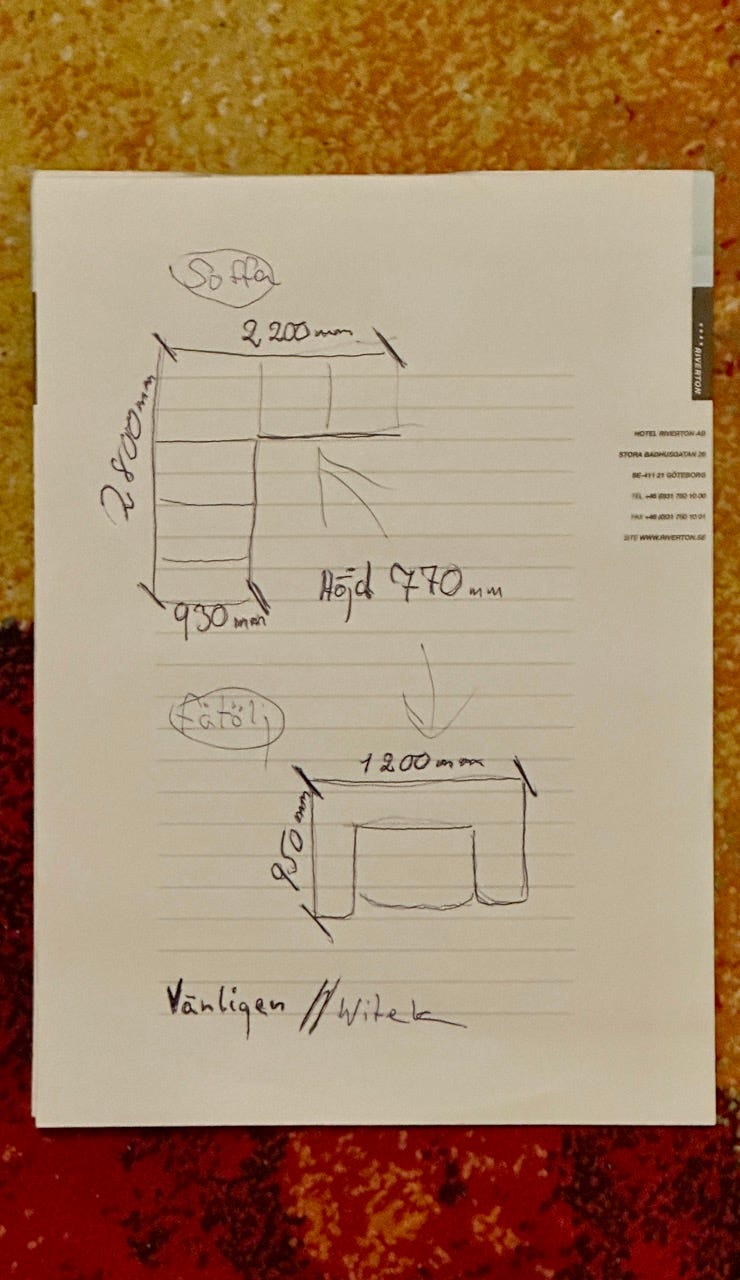 Soffa
2 200 mm
2800 mm
930 mm
Höjd 770 mm
Fåtölj
1200 mm
950 mm
Vänligen // Witek
**** RIVERTON
HOTEL RIVERTON AB
STORA BADHUSGATAN 26
SE-411 21 GÖTEBORG
TEL +46 (0)31 750 10 00
FAX +46 (0)31 750 10 01
SITE WWW.RIVERTON.SE